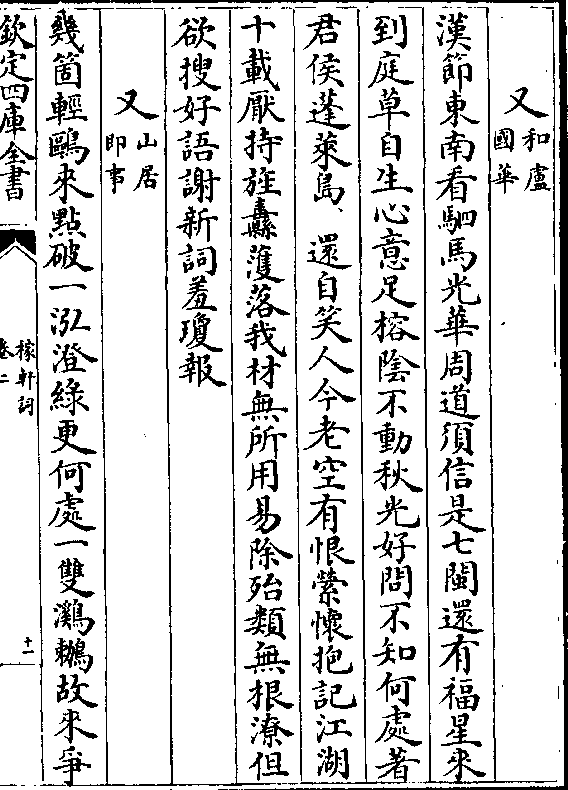 又和盧
國華
漢節東南看駟馬光華周道須信是七閩還有福星來
到庭草自生心意足榕陰不動秋光好問不知何處著
君侯蓬萊島、還自笑人今老空有恨縈懷抱記江湖
十載厭持旌纛濩落我材無所用易除殆類無根潦但
欲搜好語謝新詞羞瓊報
又山居
即事
幾箇輕鷗來點破一泓澄綠更何處一雙鸂鶒故來爭
欽定四庫全書
稼軒詞
卷二
十一